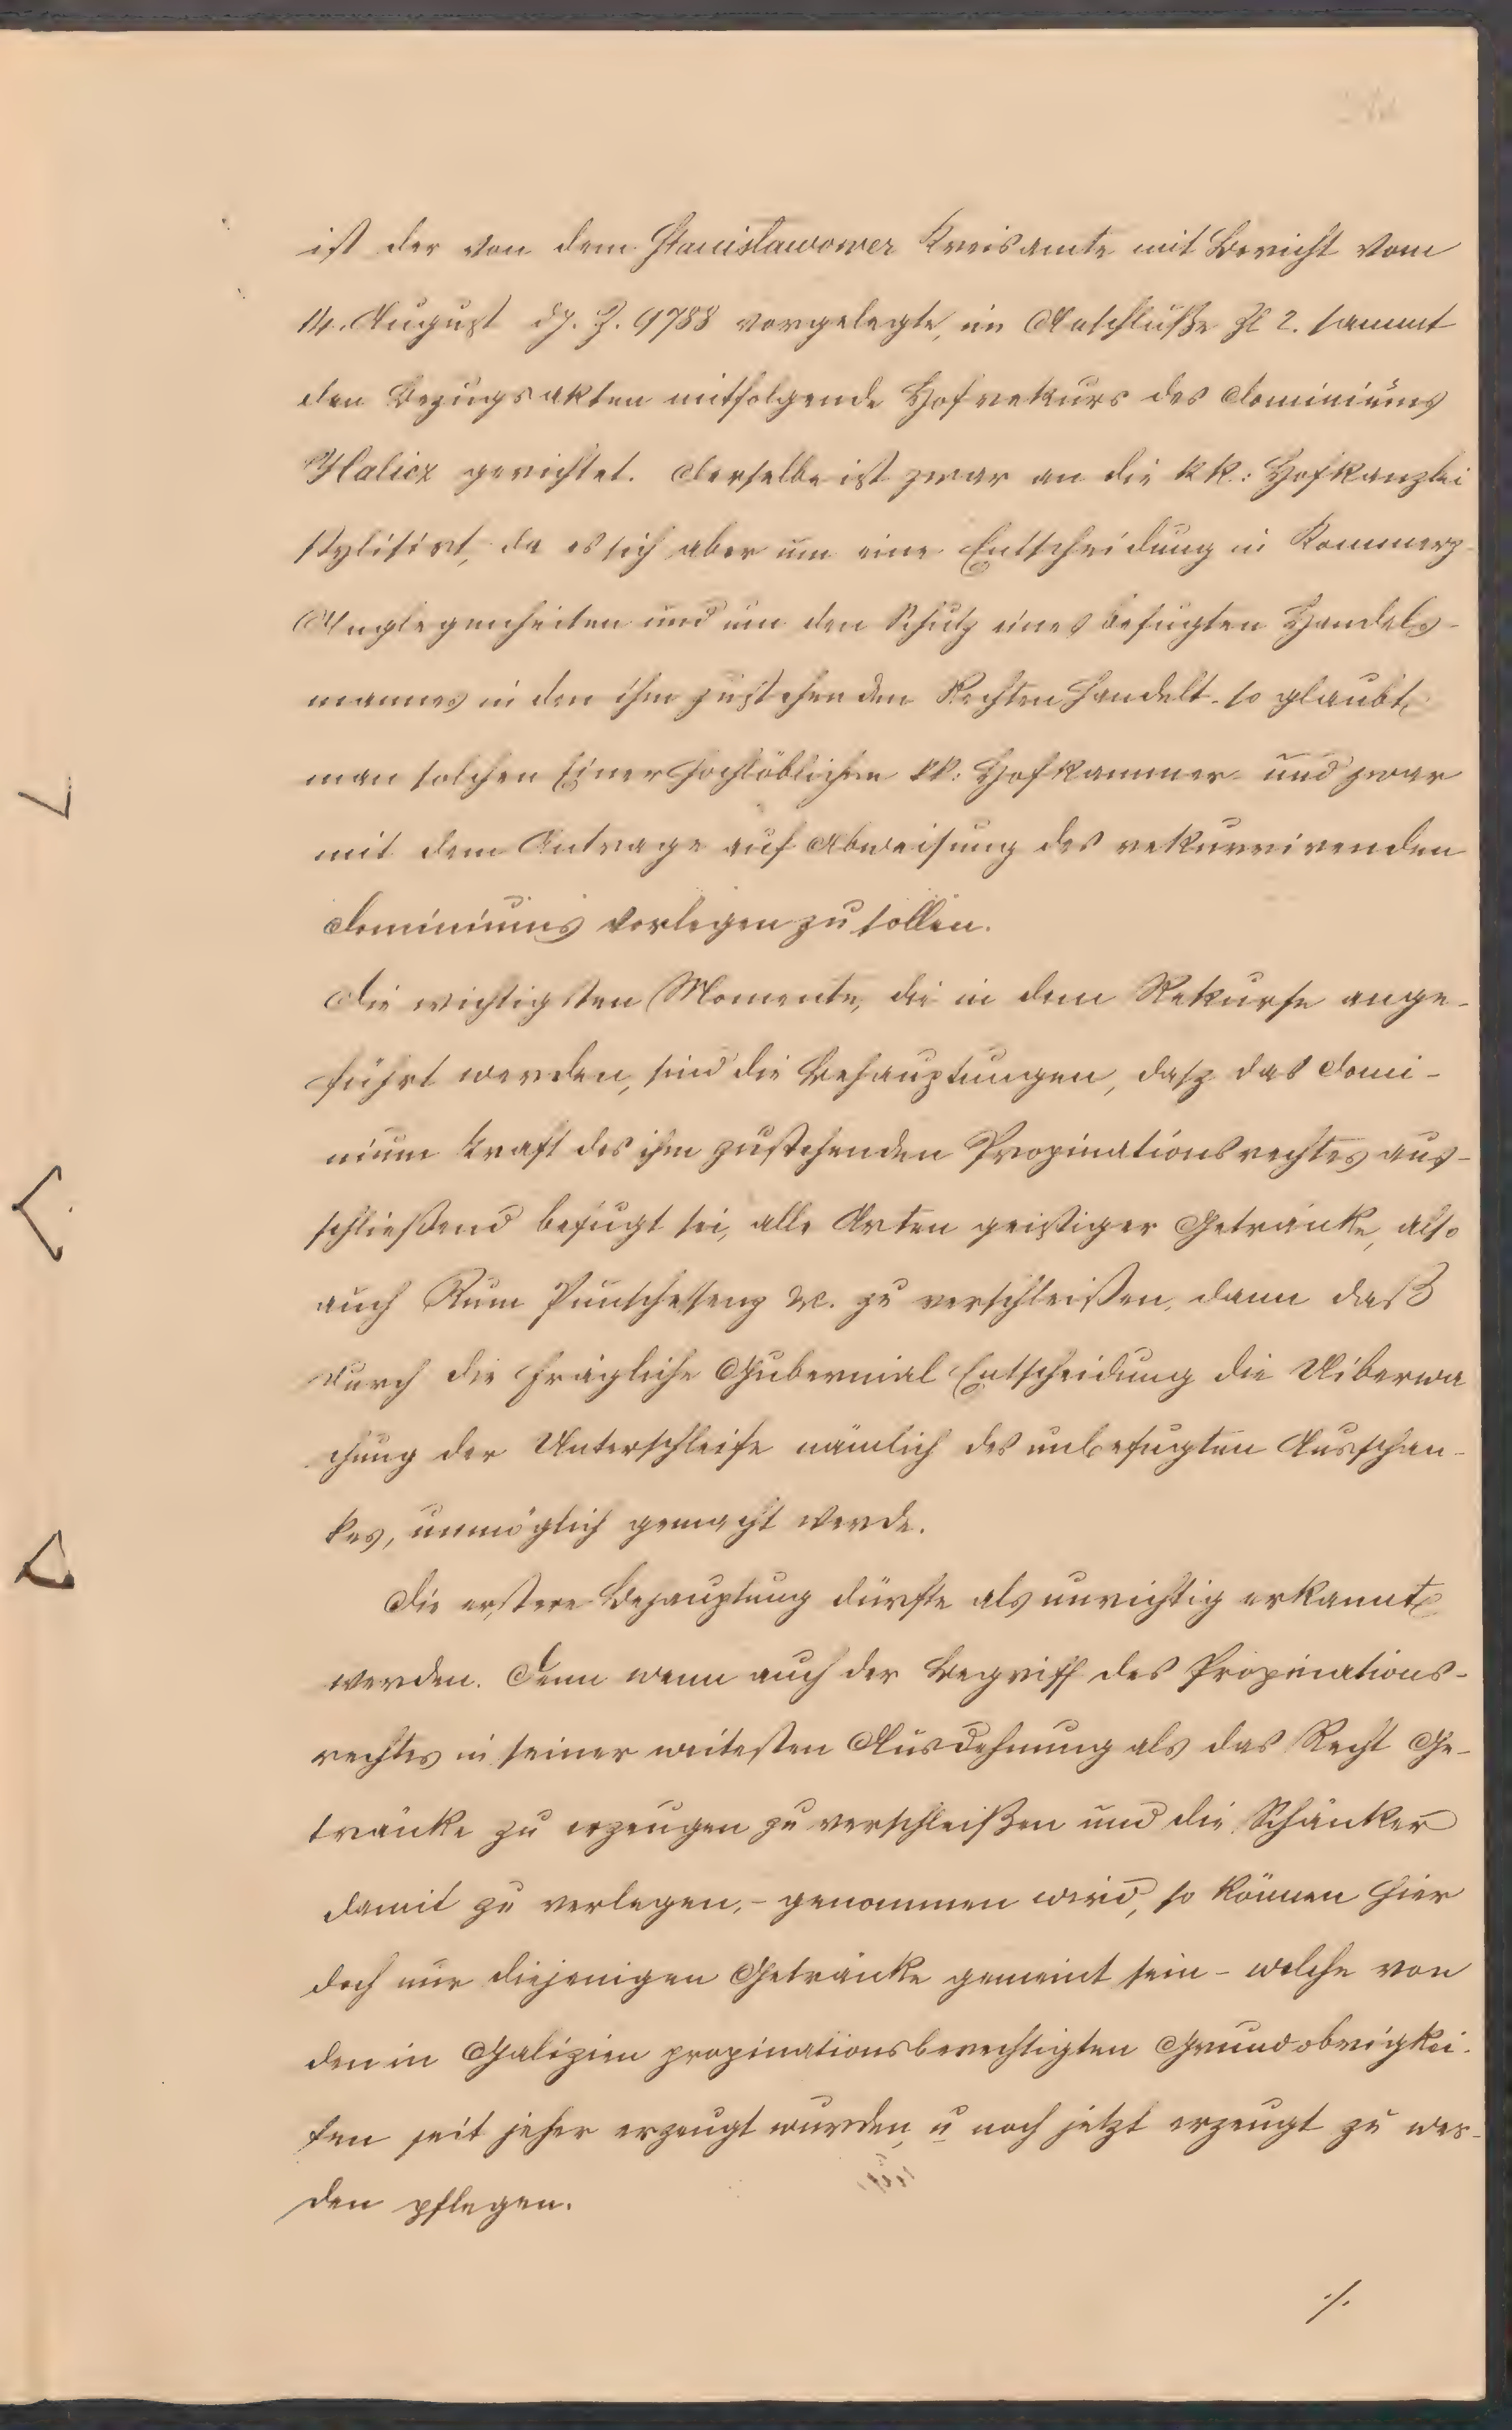 ist der von dem Stanislawower Kreisamte mit Bericht vom
14. August dJ. Z. 9788 vorgelegte, im Anschluße Zl 2. sammt
den Bezugsakten mitfolgende Hofrekurs des Dominiums
Halicz gerichtet. Derselbe ist zwar an die kk: Hofkanzlei
stylisirt, da es sich aber um eine Entscheidung in Kommerz-
Anglegenheiten und um den Schutz eines befugten Handels-
mannes in den ihm zustehenden Rechten handelt - so glaubt
man solchen Einer hochlöblichen kk: Hofkammer und zwar
mit dem Antrage auf Abweisung des rekurrirenden
Dominiums vorlegen zu sollen.
Die wichtigsten Momente, die in dem Rekurse ange-
führt werden, sind die Behauptungen, dasz das Domi-
nium kraft des ihm zustehenden Propinationsrechtes aus-
schließend befugt sei, alle Arten geistiger Getränke, also
auch Rum Punschessenz &c. zu verschleißen, dann daß
durch die fragliche Gubernial Entscheidung die Uiberwa
chung der Unterschleife nämlich des unbefugten Ausschan-
kes, unmöglich gemacht werde.
Die erstere Behauptung dürfte als unrichtig erkannt
werden. Denn wenn auch der Begriff des Propinations-
rechtes in seiner weitesten Ausdehnung als das Recht Ge-
tränke zu erzeugen zu verschleißen und die Schänker
damit zu verlegen, - genommen wird, so können hier
doch nur diejenigen Getränke gemeint sein - welche von
den in Galizien propinationsberechtigten Grundobrigkei-
ten seit jeher erzeugt wurden, u noch jetzt erzeugt zu wer-
den pflegen.
./.